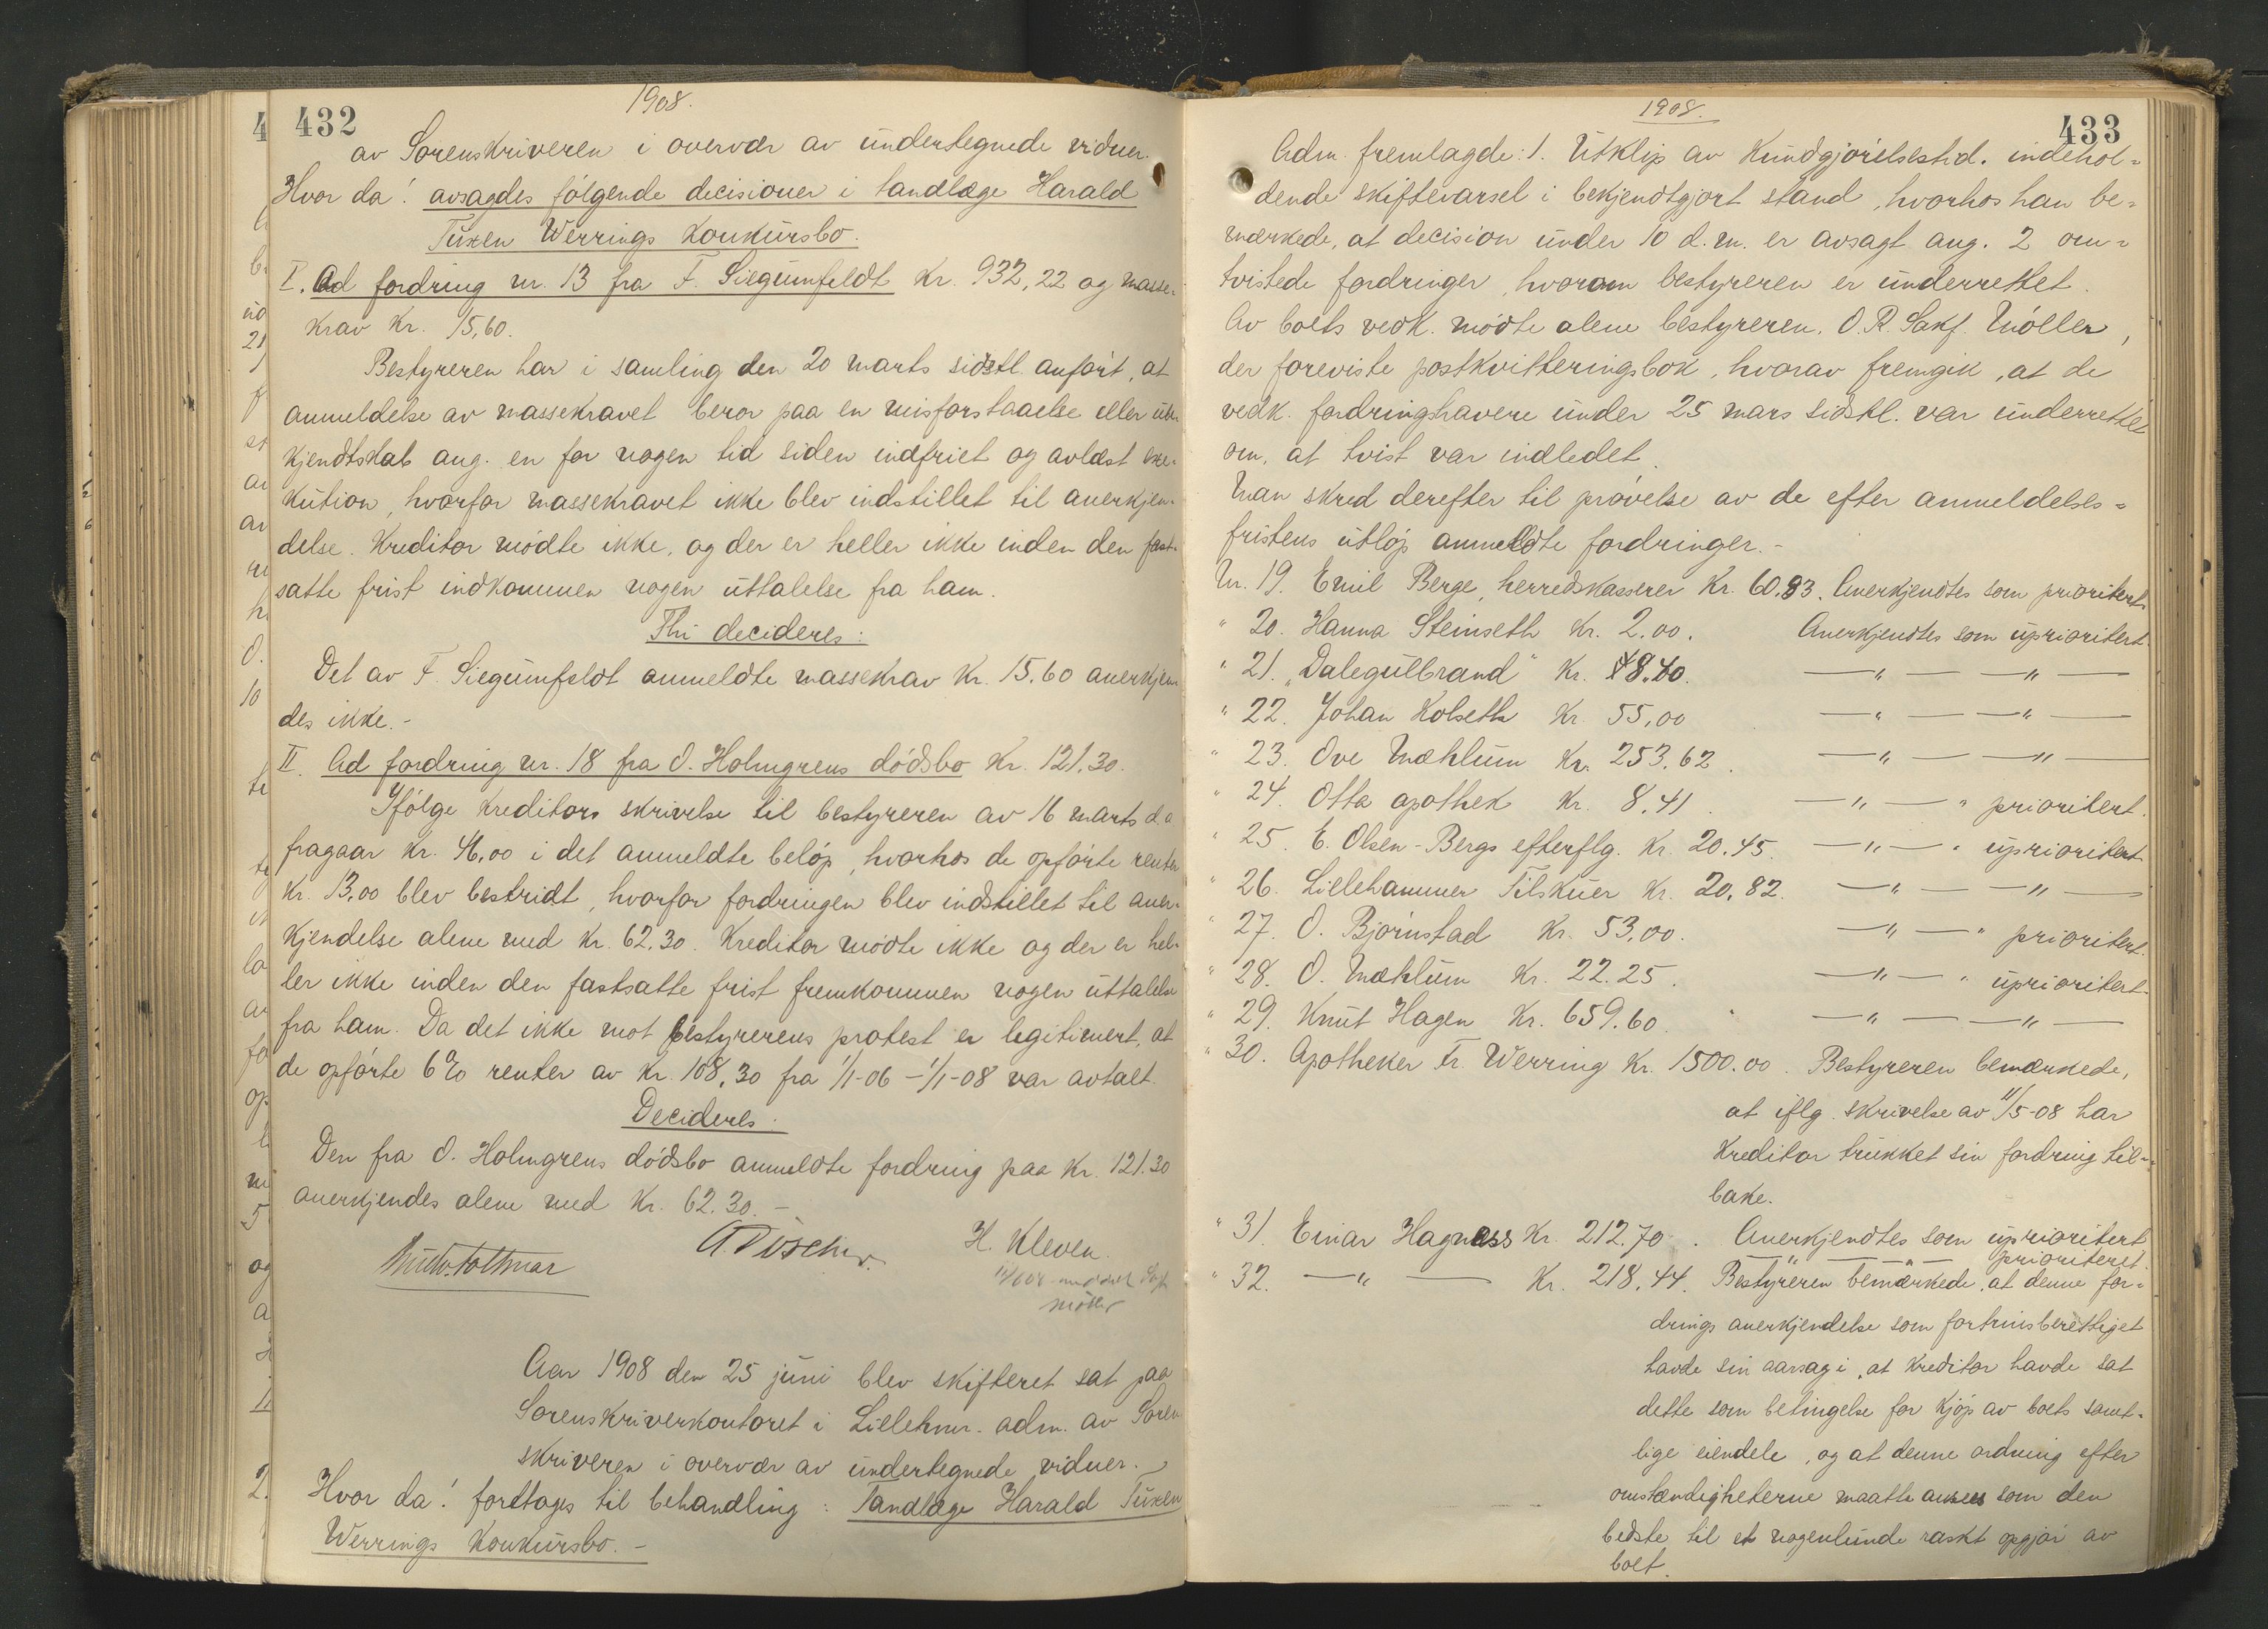 432
1908.
av Sorenskriveren i overvær av undertegnede vidner.
Hvor da! avsagdes følgende decisioner i tandlæge Harald
Tuxen Werrings konkursbo.
I. Ad fordring nr. 13 fra F. Siegumfeldt Kr. 932,22 og masse-
krav Kr. 15,60.
Bestyreren har i samling den 20 marts sidstl. anført, at
anmeldelse av massekravet beror paa en misforstaaelse eller ube-
kjendtskab ang. en for nogen tid siden indfriet og avlæst exe-
kution, hvorfor massekravet ikke blev indstillet til anerkjen-
delse. Kreditor mødte ikke, og der er heller ikke inden den fast-
satte frist indkommen nogen uttalelse fra ham.
Thi decideres:
Det av F. Siegumfeldt anmeldte massekrav Kr. 15.60 anerkjen-
des ikke.-
II. Ad fordring nr. 18 fra O. Holmgrens dødsbo Kr. 121.30.
Ifølge kreditors skrivelse til bestyreren av 16 marts d.a.
fragaar Kr. 46,00 i det anmeldte beløp, hvorhos de opførte renter
Kr. 13,00 blev bestridt, hvorfor fordringen blev indstillet til aner-
kjendelse alene med Kr. 62.30. Kreditor mødte ikke og der er hel-
ler ikke inden den fastsatte frist fremkommen nogen uttalelse
fra ham. Da det ikke mot bestyrerens protest er legitimert, at
de opførte 6% renter av Kr. 108,30 fra 1/1-06 – 1/1-08 var avtalt.
Decideres:
Den fra O. Holmgrens dødsbo anmeldte fordring paa Kr. 121.30
anerkjendes alene med Kr. 62.30.-
H. Kleven.
Møller
Aar 1908 den 25 juni blev skifteret sat paa
Sorenskriverkontoret i Lillehmr. adm. av Soren
skriveren i overvær av undertegnede vidner.
Hvor da! foretages til behandling: Tandlæge Harald Tuxen
Werrings Konkursbo.-
1908.
433
Adm. fremlagde: 1. Utklip av Kundgjørelsestid. indehol-
dende skiftevarsel i bekjendtgjort stand, hvorhos han be-
mærkede, at decision under 10 d.m. er avsagt ang. 2 om-
tvistede fordringer, hvorom bestyreren er underrettet.
Av boets vedk. mødte alene bestyreren, O.R. Sakf. Møller,
der foreviste postkvitteringsbok, hvorav fremgik, at de
vedk. fordringshavere under 25 mars sidstl. var underrettet
om, at tvist var indledet.
Man skred derefter til prøvelse av de efter anmeldelses-
fristens utløp anmeldte fordringer.-
Nr. 19. Emil Berge, herredskasserer Kr. 60.83. Anerkjendtes som prioritert.
" 20. Hanna Steinseth Kr. 2.00. Anerkjendtes som uprioritert.
" 21. "Dalegudbrand" Kr. 8.40. —"— —"—
" 22. Johan Kolseth Kr. 55,00 —"— —"—
" 23. Ove Mæhlum Kr. 253.62. —"— —"—
" 24. Otta apothek Kr. 8.41. —"— " prioritert.
" 25. E. Olsen-Bergs efterflg. Kr. 20.45. —"— " uprioritert.
" 26. Lillehammer Tilskuer Kr. 20.82. —"— —"—
" 27. O. Bjørnstad Kr. 53,00. —"— " prioritert.
" 28. O. Mæhlum Kr. 22.25. —"— " uprioritert.
" 29. Knut Hagen Kr. 659.60. —"— —"—
" 30. Apotheker Fr. Werring Kr. 1500.00. Bestyreren bemærkede,
at iflg. skrivelse av 11/5-08 har
kreditor trukket sin fordring til-
bake.
" 31. Einar Hagness Kr. 212.70. Anerkjendtes som uprioritert
—"— —"— prioriteret.
" 32. —"— Kr. 218.44. Bestyreren bemærkede, at denne for-
drings anerkjendelse som fortrinsberettiget
havde sin aarsag i, at kreditor havde sat
dette som betingelse for kjøp av boets samt-
lige eiendele, og at denne ordning efter
omstændigheterne maatte ansees som den
bedste til et nogenlunde raskt opgjør av
boet.